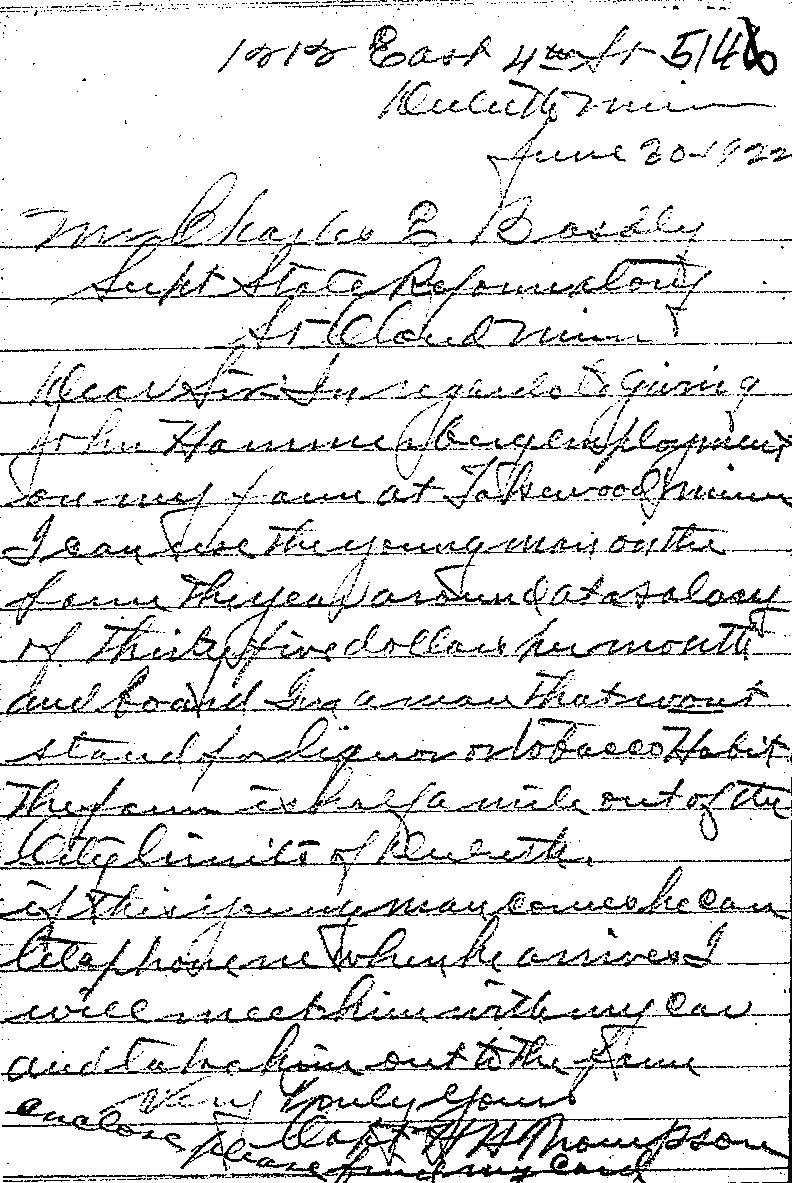 1212 East 4th St 5148
Duluth Minn
June 20-1922
Mr Charles E. Vasaly
Supt State Reformatory
St Cloud Minn
Dear Sir In regards to giving
John Hammerberg employment
on my farm at Lakewood Minn
I can use the young man on the
farm the year around at a salary
of thirty five dollars per month
and board Im a man that wont
stand for liquor or Tobacco Habit.
The farm is half a mile out of the
City limits of Duluth.
if this young man comes he can
telephone me when he arrives I
will meet him with my car
and take him out to the farm
Very truly yours
Capt H H Thompson
enclose please find my card